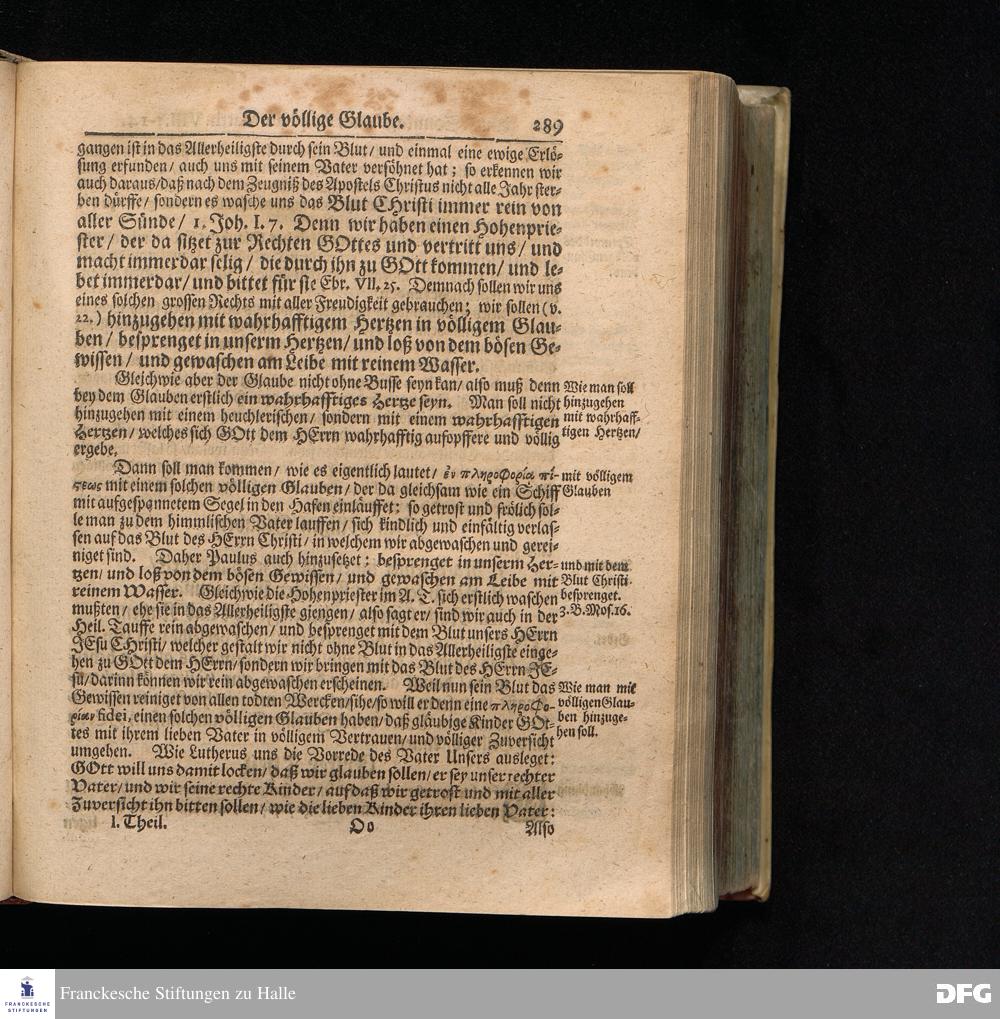 Der völlige Glaube. 289
gangen ist in das Allerheiligste durch sein Blut/ und einmal eine ewige Erlö-
sung erfunden/ auch uns mit seinem Vater versöhnet hat; so erkennen wir
auch daraus/ daß nach dem Zeugniß des Apostels Christus nicht alle Jahr ster-
ben dürffe/ sondern es wasche uns das Blut CHristi immer rein von
aller Sünde/ 1. Joh. I. 7. Denn wir haben einen Hohenprie-
ster/ der da sitzet zur Rechten GOttes und vertritt uns/ und
macht immerdar selig/ die durch ihn zu GOtt kommen/ und le-
bet immerdar/ und bittet für sie Ebr. VII. 25. Demnach sollen wir uns
eines solchen grossen Rechts mit aller Freudigkeit gebrauchen; wir sollen (v.
22.) hinzugehen mit wahrhafftigem Hertzen in völligem Glau-
ben/ besprenget in unserm Hertzen/ und loß von dem bösen Ge-
wissen/ und gewaschen am Leibe mit reinem Wasser.
Gleichwie aber der Glaube nicht ohne Busse seyn kan/ also muß denn
bey dem Glauben erstlich ein wahrhafftiges Hertze seyn. Man soll nicht
hinzugehen mit einem heuchlerischen/ sondern mit einem wahrhafftigen
Hertzen/ welches sich GOtt dem HErrn wahrhafftig aufopffere und völlig
ergebe.
Wie man soll
hinzugehen
mit wahrhaff-
tigen Hertzen/
Dann soll man kommen/ wie es eigentlich lautet/ ἐν πληροφορία πί-
στεως mit einem solchen völligen Glauben/ der da gleichsam wie ein Schiff
mit aufgespannetem Segel in den Hafen einläuffet: so getrost und frölich sol-
le man zu dem himmlischen Vater lauffen/ sich kindlich und einfältig verlas-
sen auf das Blut des HErrn Christi/ in welchem wir abgewaschen und gerei-
niget sind. Daher Paulus auch hinzusetzet: besprenget in unserm Her-
tzen/ und loß von dem bösen Gewissen/ und gewaschen am Leibe mit
reinem Wasser. Gleichwie die Hohenpriester im A. T. sich erstlich waschen
mußten/ ehe sie in das Allerheiligste giengen/ also sagt er/ sind wir auch in der
Heil. Tauffe rein abgewaschen/ und besprenget mit dem Blut unsers HErrn
JEsu CHristi/ welcher gestalt wir nicht ohne Blut in das Allerheiligste einge-
hen zu GOtt dem HErrn/ sondern wir bringen mit das Blut des HErrn JE-
su/ darinn können wir rein abgewaschen erscheinen. Weil nun sein Blut das
Gewissen reiniget von allen todten Wercken/ sihe/ so will er denn eine πληροφο-
ρίαν fidei, einen solchen völligen Glauben haben/ daß gläubige Kinder GOt-
tes mit ihrem lieben Vater in völligem Vertrauen/ und völliger Zuversicht
umgehen. Wie Lutherus uns die Vorrede des Vater Unsers ausleget:
GOtt will uns damit locken/ daß wir glauben sollen/ er sey unser rechter
Vater/ und wir seine rechte Kinder/ auf daß wir getrost und mit aller
Zuversicht ihn bitten sollen/ wie die lieben Kinder ihren lieben Vater:
mit völligem
Glauben
und mit dem
Blut Christi
besprenget.
3. B. Mos. 16.
Wie man mit
völligen Glau-
ben hinzuge-
hen soll.
I. Theil. Oo Also
FRANCKESCHE
STIFTUNGEN
Franckesche Stiftungen zu Halle
DFG